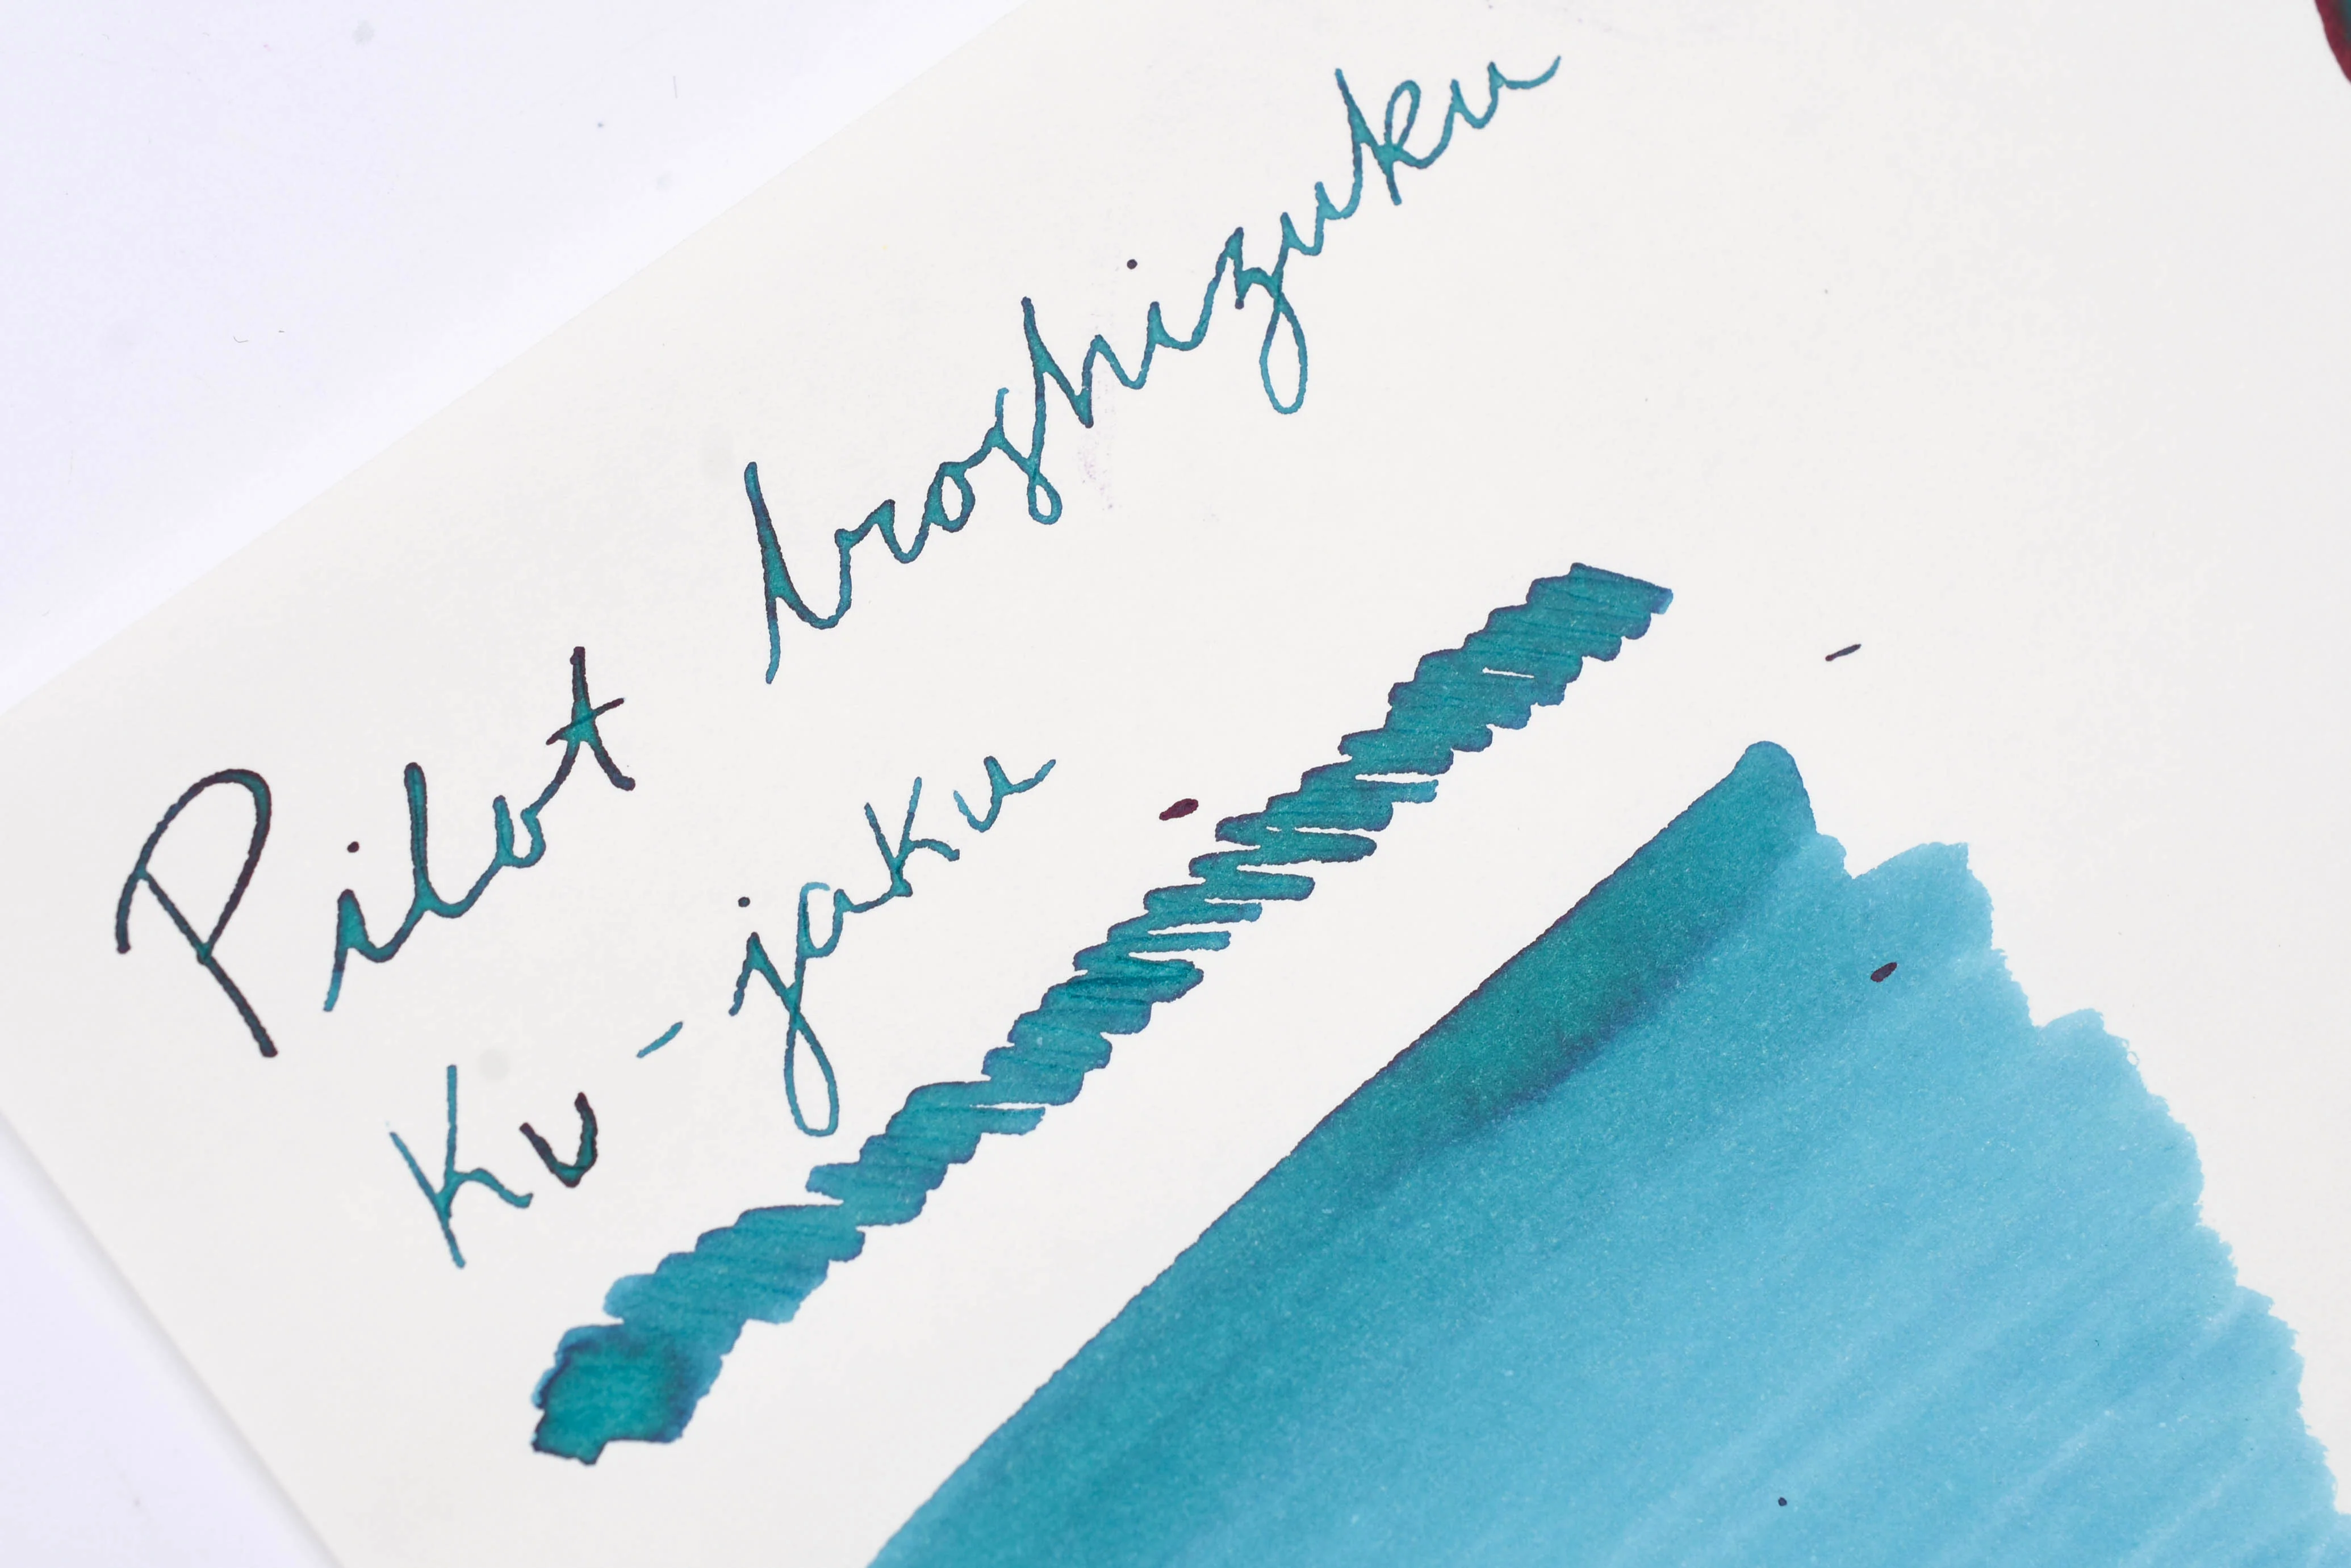 Pilot Iroshizuku
Ku-jaku